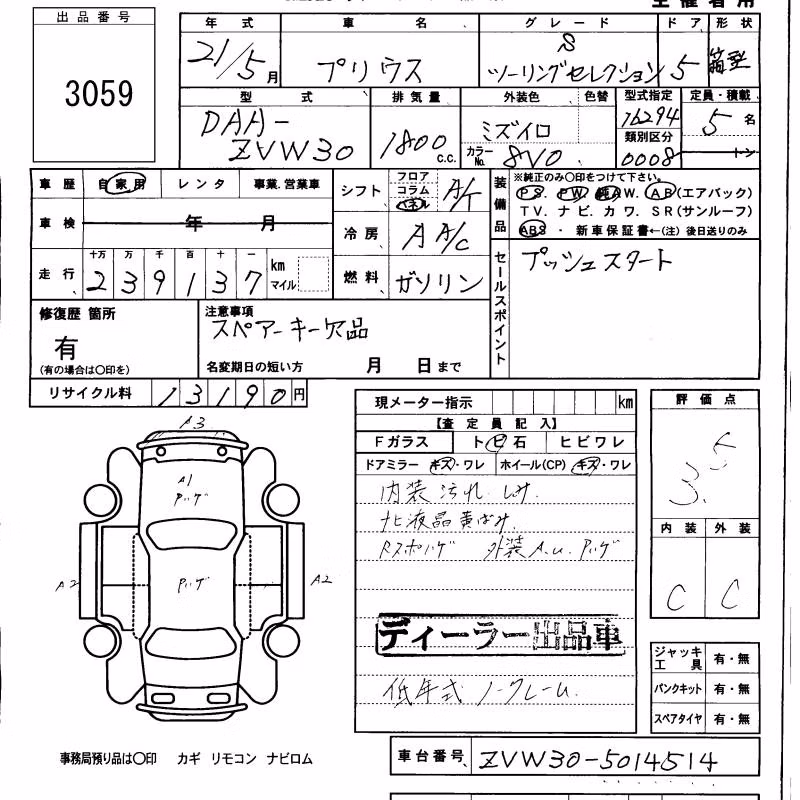 出品番号
3059
年式
21/5月
車名
プリウス
グレード
S
ツーリングセレクション
ドア
5
形状
箱型
型式
DAA-
ZVW30
排気量
1800 C.C.
外装色
ミズイロ
色替
カラーNo.
8V0
型式指定
16294
類別区分
0008
定員・積載
5名
トン
車歴 自家用 レンタ 事業.営業車
車検 年 月
走行 十万 万 千 百 十 一
239137 km マイル
シフト フロア コラム パネル A/T
冷房 A A/C
燃料 ガソリン
装備品
※純正のみ○印をつけて下さい。
P.S. P.W. 純A.W. A.B(エアバック)
T.V. ナビ. カワ. S.R(サンルーフ)
ABS・新車保証書←(注)後日送りのみ
セールスポイント
プッシュスタート
修復歴 箇所
有
(有の場合は○印を)
注意事項
スペアーキー欠品
名変期日の短い方 月 日まで
リサイクル料 13190円
A3
A1
A2
A2
現メーター指示 km
【査定員記入】
Fガラス トビ石 ヒビワレ
ドアミラー キズ・ワレ ホイール(CP) キズ・ワレ
内装汚れ シミ
北液晶黄ばみ
外装A.u.
ディーラー出品車
低年式 ノークレーム
評価点
3.5
内装 外装
C C
ジャッキ工具 有・無
パンクキット 有・無
スペアタイヤ 有・無
事務局預り品は○印 カギ リモコン ナビロム
車台番号 ZVW30-5014514